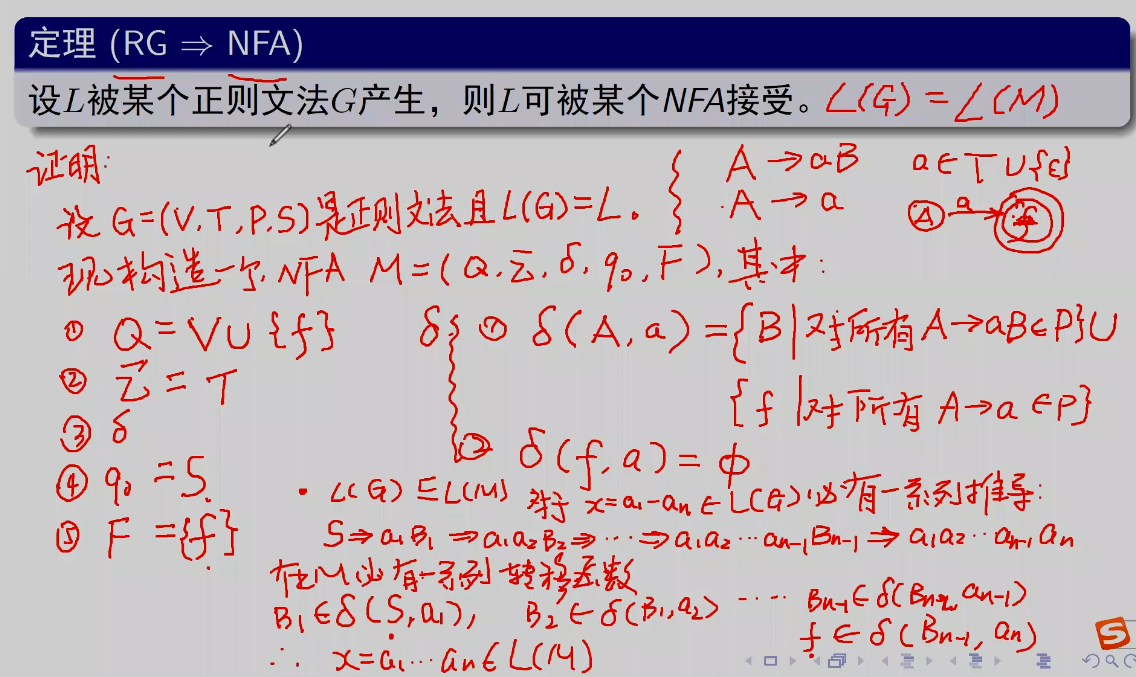 定理 (RG ⇒ NFA)
设L被某个正则文法G产生，则L可被某个NFA接受。 L(G) = L(M)
证明:
设 G=(V,T,P,S)是正则文法且L(G)=L。
A → aB a∈T∪{ε}
A → a
A a f
现构造一个 NFA M=(Q,Σ,δ,q₀,F),其中:
① Q=V∪{f}
② Σ=T
③ δ
④ q₀=S
⑤ F={f}
δ ① δ(A,a)={B|对所有A→aB∈P}∪
{f|对所有A→a∈P}
② δ(f,a)=φ
· L(G)⊆L(M) 对于 x=a₁-aₙ∈L(G)必有一系列推导:
S⇒a₁B₁⇒a₁a₂B₂⇒···⇒a₁a₂···aₙ₋₁Bₙ₋₁⇒a₁a₂··aₙ₋₁aₙ
在M必有一系列转移函数
B₁∈δ(S,a₁), B₂∈δ(B₁,a₂) ···· Bₙ₋₁∈δ(Bₙ₋₂,aₙ₋₁)
f∈δ(Bₙ₋₁,aₙ)
∴ x=a₁···aₙ∈L(M)
S